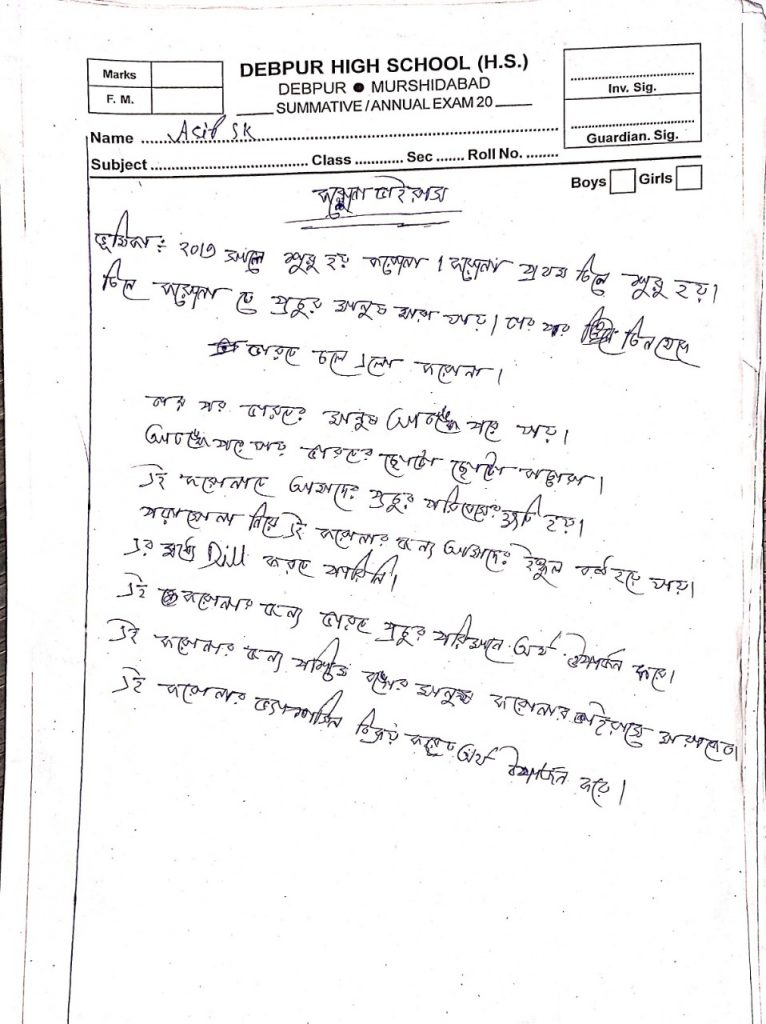 Marks
F. M.
DEBPUR HIGH SCHOOL (H.S.)
DEBPUR ● MURSHIDABAD
SUMMATIVE / ANNUAL EXAM 20
Inv. Sig.
Guardian. Sig.
Name Asif SK
Subject Class Sec Roll No.
Boys Girls
করোনা ভাইরাস
ভূমিকা : ২০১৯ সালে শুরু হয় করোনা। করোনা প্রথম চিনে শুরু হয়।
চিনে করোনা তে প্রচুর মানুষ মারা যায়। তার পর চিন থেকে
ভারতে চলে এলো করোনা।
তার পর ভারতের মানুষ আতঙ্কে পরে যায়।
আতঙ্কে পরে যায় ভারতের ছোটো ছোটো বাচ্চারা।
এই করোনাতে আমাদের প্রচুর পরিবেশের ক্ষতি হয়।
পড়াশোনা নিয়ে এই করোনার জন্য আমাদের ইস্কুল বন্ধ হয়ে যায়।
এর মধ্যে Dill করতে পারিনি।
এই করোনার জন্য ভারত প্রচুর পরিমানে অর্থ উপার্জন করে।
এই করোনার জন্য পশ্চিম বঙ্গের মানুষ করোনার ভাইরাসে
এই করোনার ভ্যাকসিন বিক্রয় করে অর্থ উপার্জন করে।